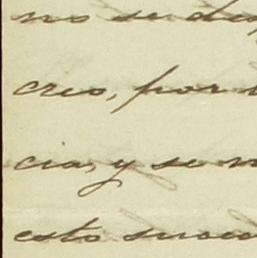 no se des
creo, por
cia, y se
esto suce